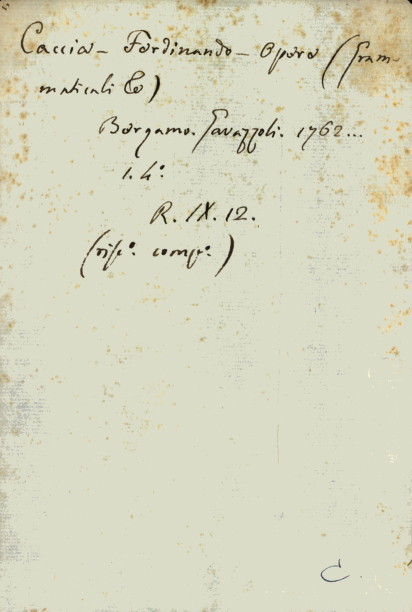 Caccia - Ferdinando - Opere (Gram-
maticali &c)
Bergamo. Lavazzoli. 1762...
1. 4º.
R. IX. 12.
(risc. comp.)
C.